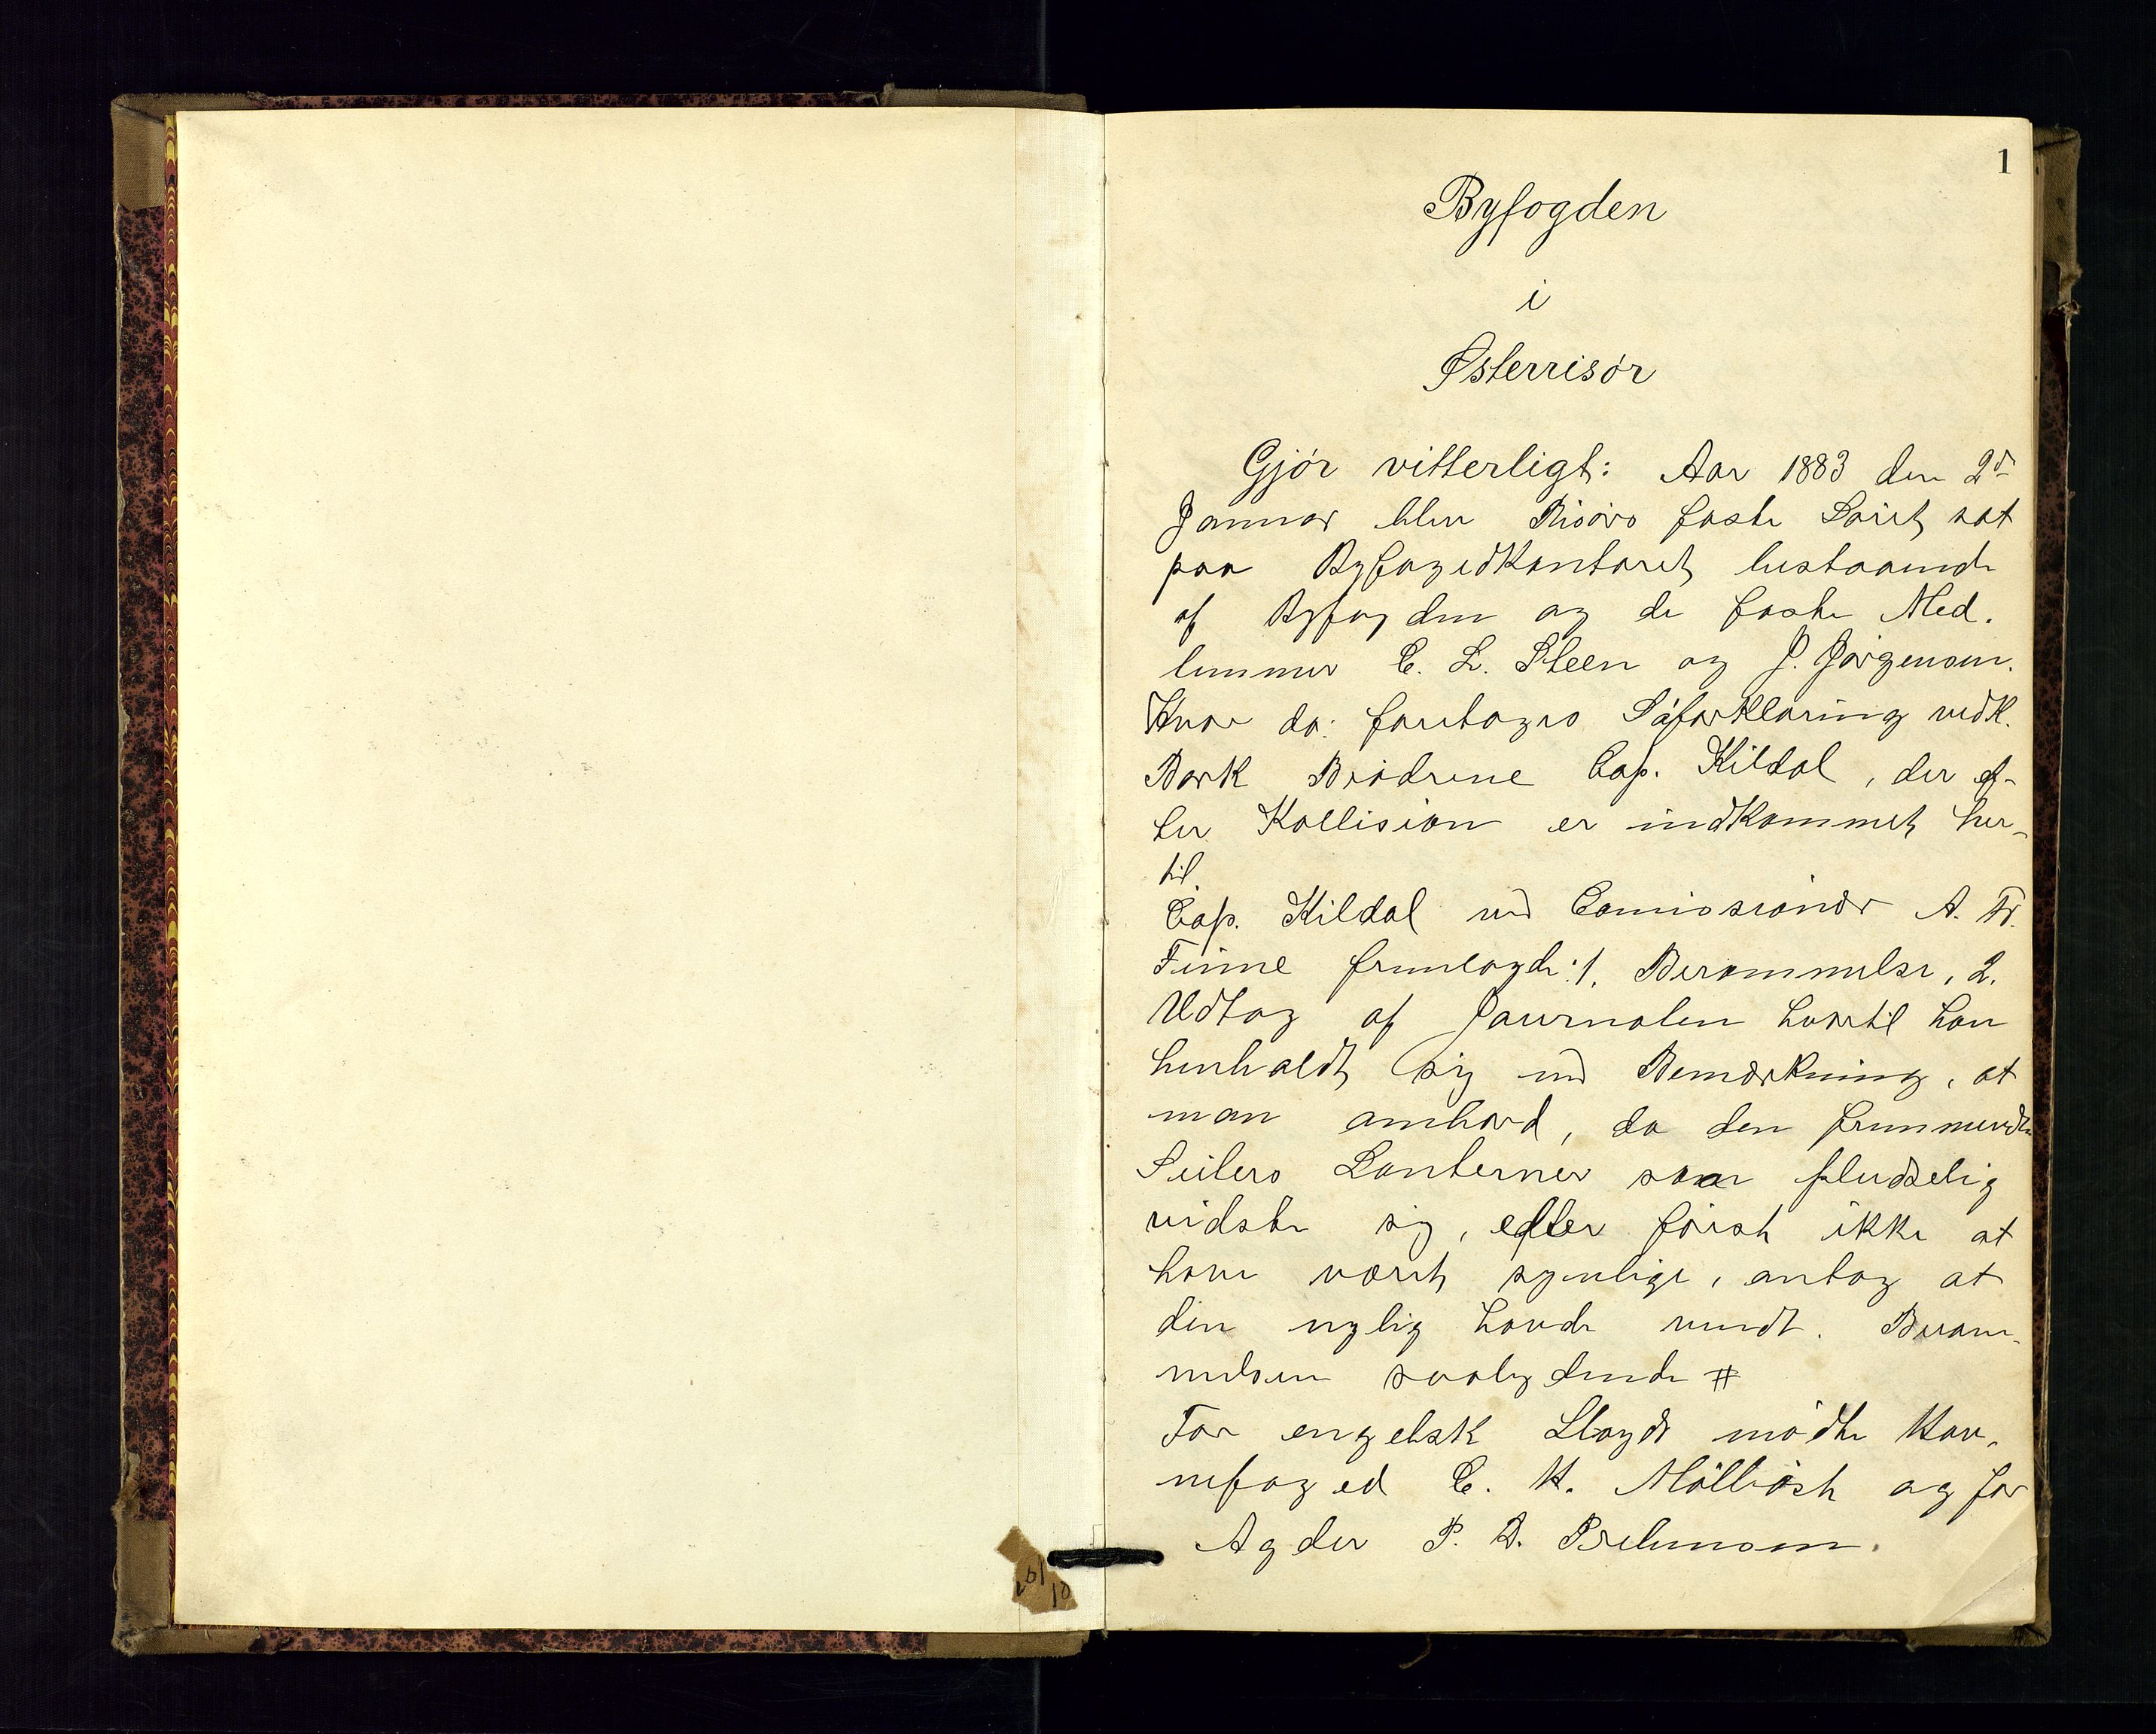 1
Byfogden
i
Østerrisör
Gjör vitterligt: Aar 1883 den 2den
Januar blev Risörs faste Söret sat
paa Byfogedkontoret bestaaende
af Byfogden og de faste Med.
lemmer C. L. Steen og J. Jörgensen.
Hvor da: foretoges Söforklaring vedk.
Bark Brödrene Cap. Kildal, der ef-
ter Kollision er indkommet her-
til.
Cap. Kildal ved Comissionær A. Fr.
Finne fremlagde: 1. Berammelse, 2.
Udtog af Journalen hvortil han
henholdt sig med Bemærkning, at
man ombord, da den fremmede
Seilers Lanterner saa pludselig
vidste sig, efter först ikke at
have været synlige, antog at
den nylig havde vendt. Beram-
melsen saalydende #
For engelsk Lloyds mödte Hav-
nefoged C. H. Mölbösh og for
Agder P. D. Prebensen.